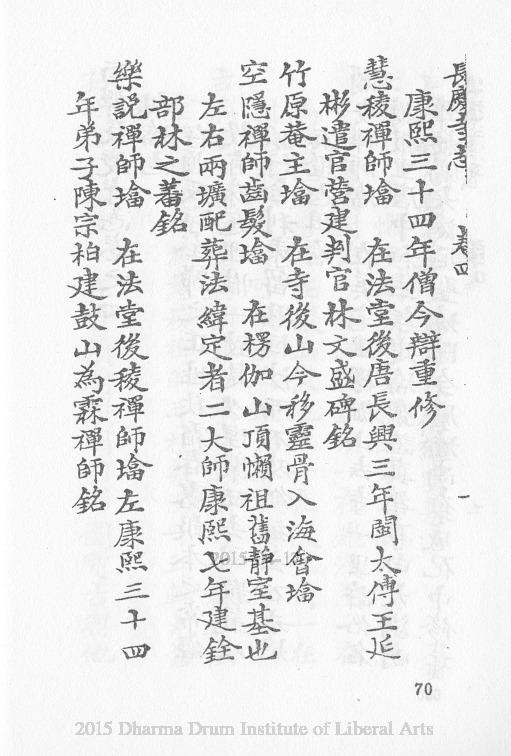 長慶寺志 卷四 一
康熙三十四年僧今辯重修
慧稜禪師墖 在法堂後唐長興三年閩太傅王延
彬遣官營建判官林文盛碑銘
竹原菴主墖 在寺後山今移靈骨入海會墖
空隱禪師齒髮墖 在楞伽山頂懶祖舊靜室基也
左右兩壙配葬法緯定者二大師康熙七年建銓
部林之蕃銘
樂説禪師墖 在法堂後稜禪師墖左康熙三十四
年弟子陳宗柏建鼓山為霖禪師銘
70
2015 Dharma Drum Institute of Liberal Arts